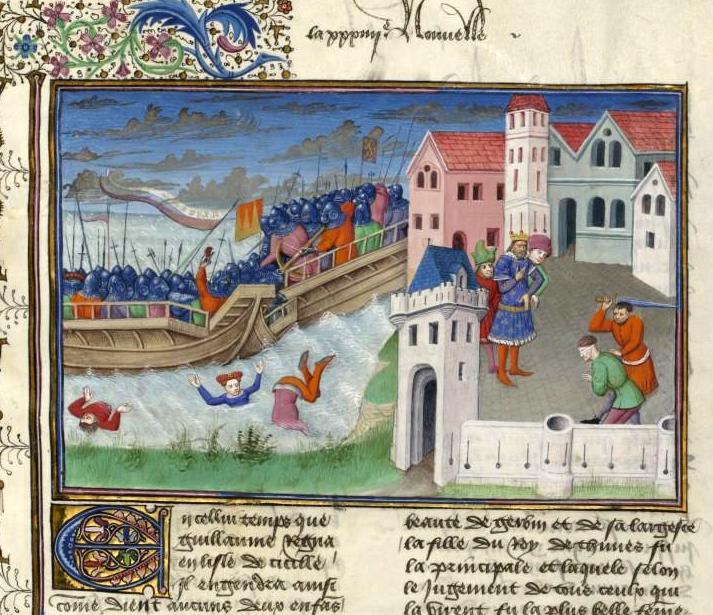 la xxxiiij.e Nouvelle
En cellui temps que
guillaume Regna
en lisle de cicille
il engendra ainsi
come dient aucuns deux enfans
beaute de gerbin et de sa largesce
la fille du Roy de thunes fu
la principale et laquele selon
le Jugement de tous ceulx qui
la virent fu la plus belle feme